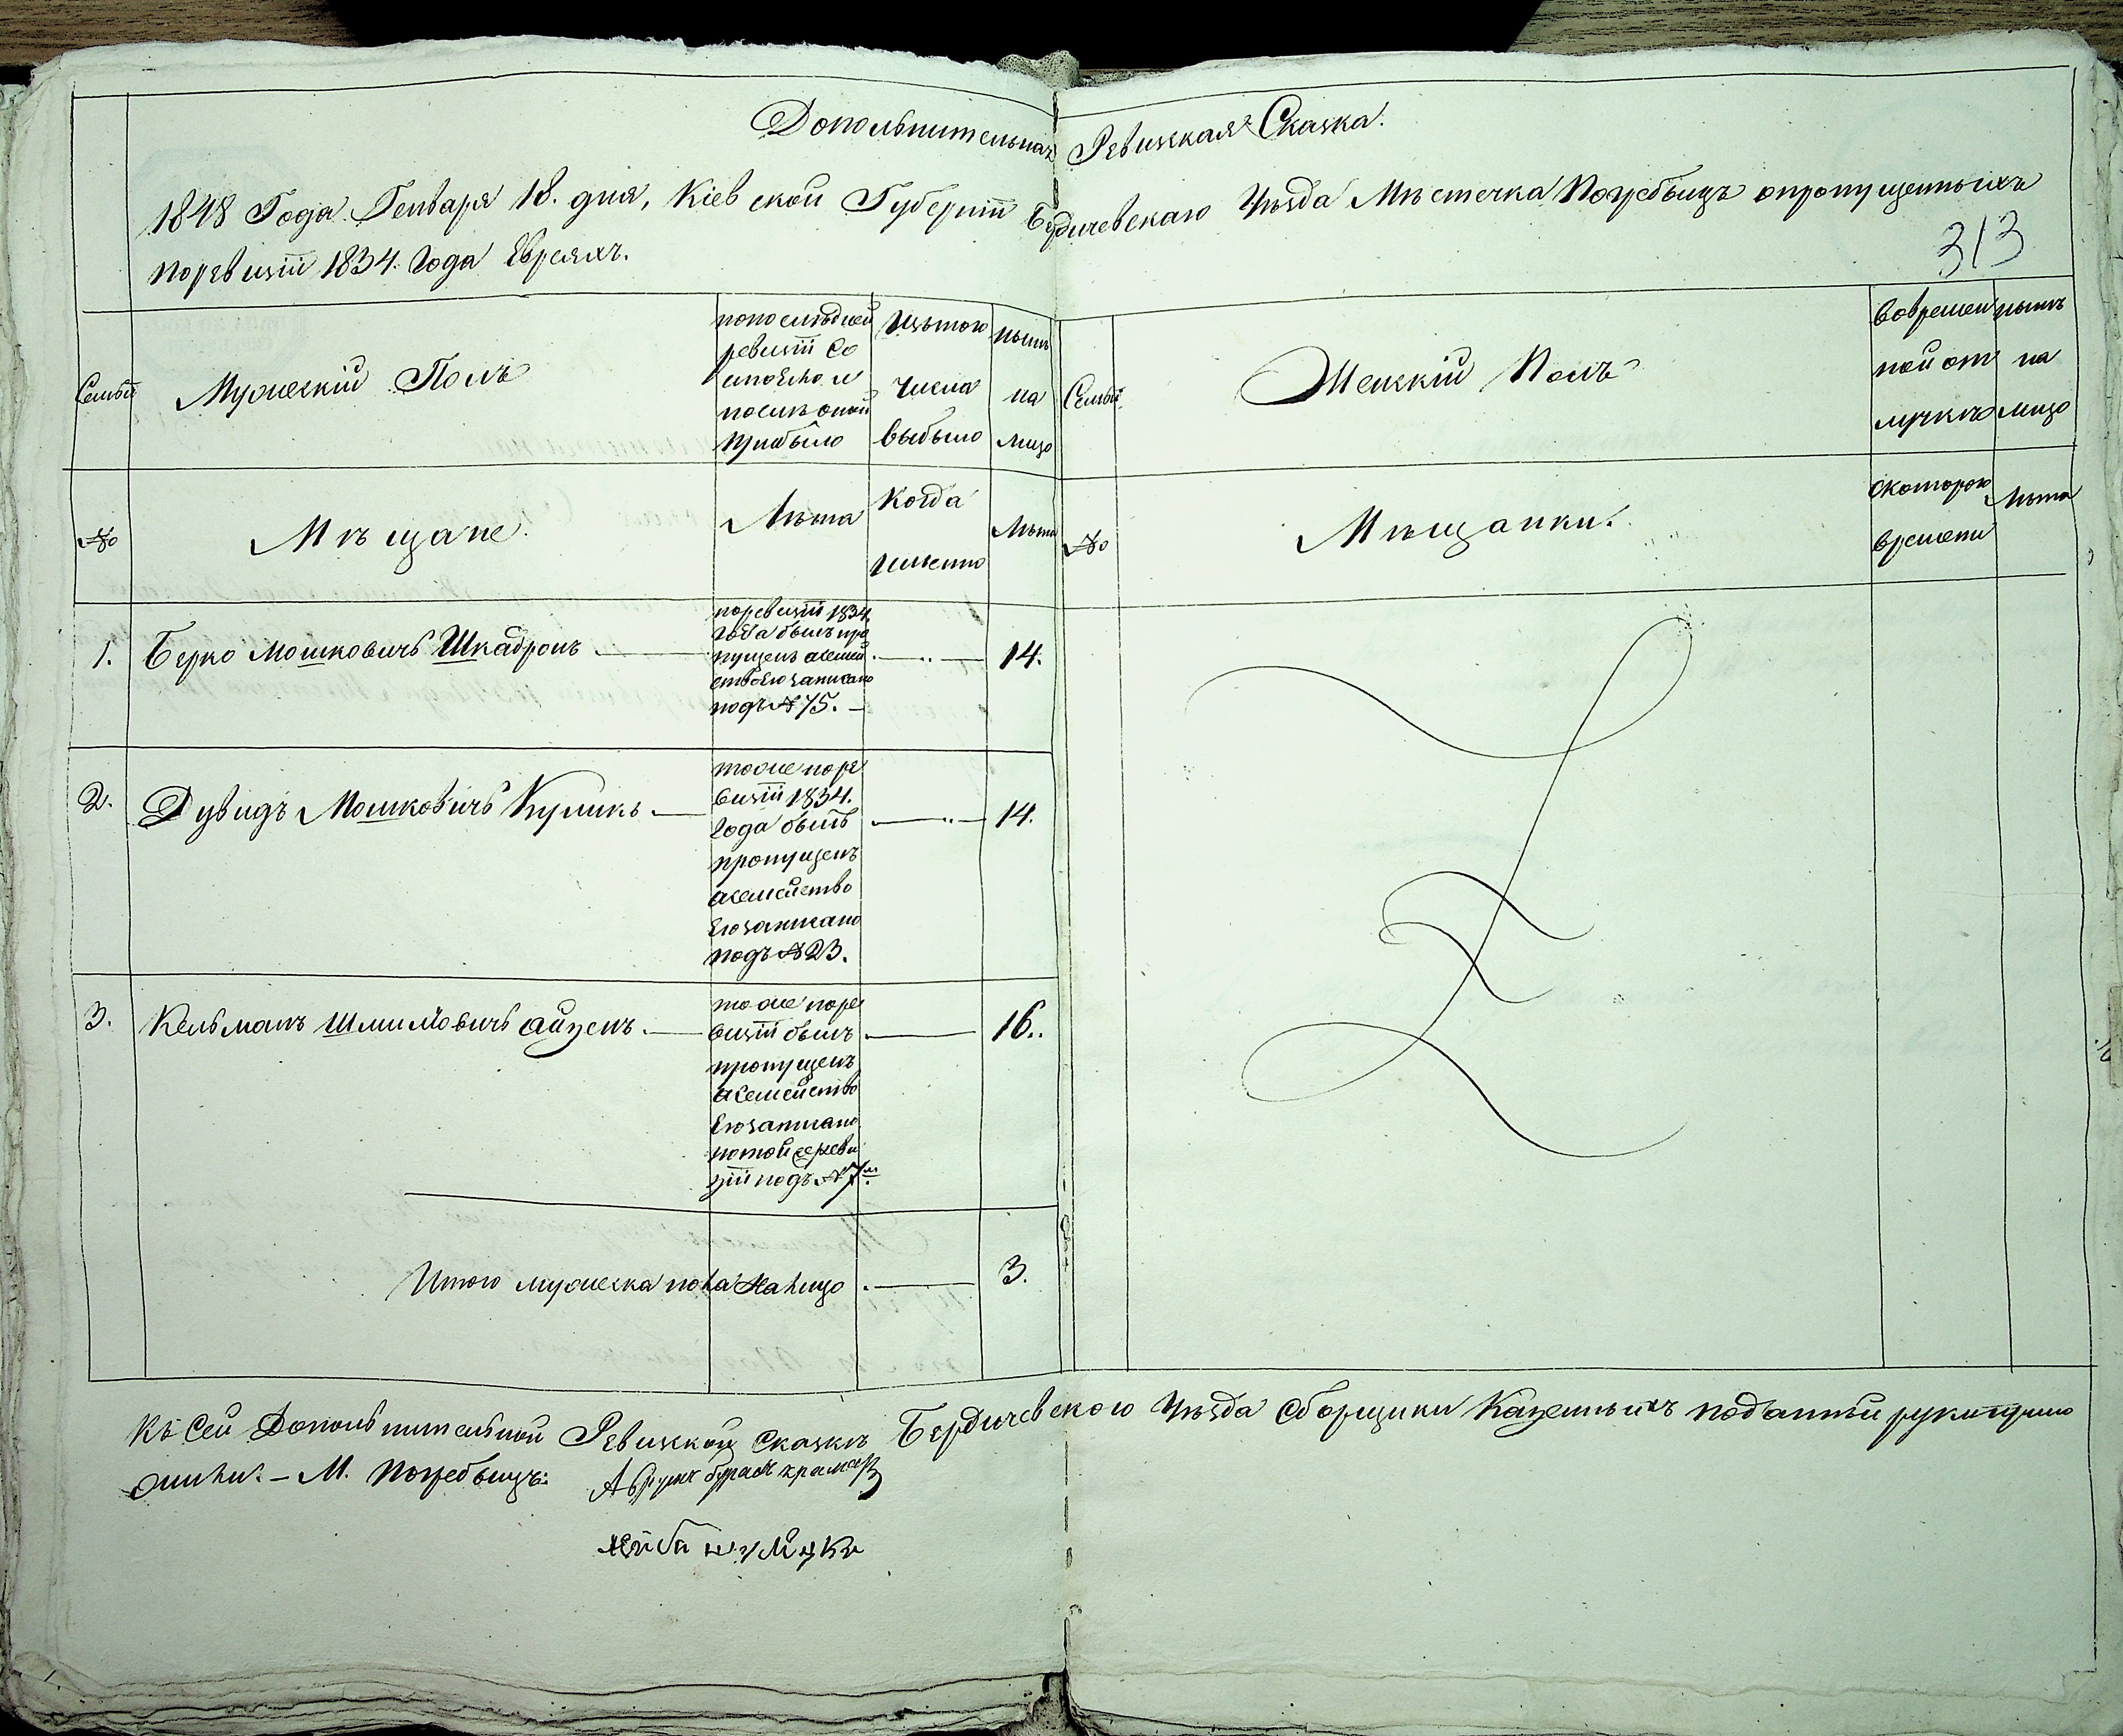 Дополнительная Ревизская Сказка.
1848 Года Генваря 18. дня, Кіевской Губерніи Бердичевскаго Уѣзда Мѣстечка Погребищъ опропущенныхъ
поревизіи 1834. Года Евреяхъ.
313
Семьи
Мужескій Полъ
попоследней
ревизіи Со
стояло и
послѣ оной
прибыло
Изътого
числа
выбыло
нынѣ
на
лицо
Семьи
Женскій Полъ
Вовремен
ной от
лучкѣ
нынѣ
на
лицо
№
Мѣщане.
Лѣта
Когда
Имѣнно
Лѣта
№
Мѣщанки.
скотораго
времени
Лѣта
1.
Берко Мошковичъ Шкадронъ
поревизіи 1834
года былъ про
пущенъ асемей
ство Его записано
подъ №75.
14.
2.
Дувидъ Мошковичъ Куликъ
тоже поре
визіи 1834.
Года былъ
пропущенъ
асемейство
Его записано
подъ №23.
14.
3.
Кельманъ Шлиіовичъ Айзенъ
тоже поре
визіи былъ
пропущенъ
асемейство
Его записано
потойже реви
зіи подъ №7м
16.
Итого мужеска пола Налицо
3.
Къ Сей Дополнительной Ревизкой Сказкѣ Бердичевского Уѣзда Сборщики Казенныхъ податѣй рукиприло
жили: – М. Погребищъ: